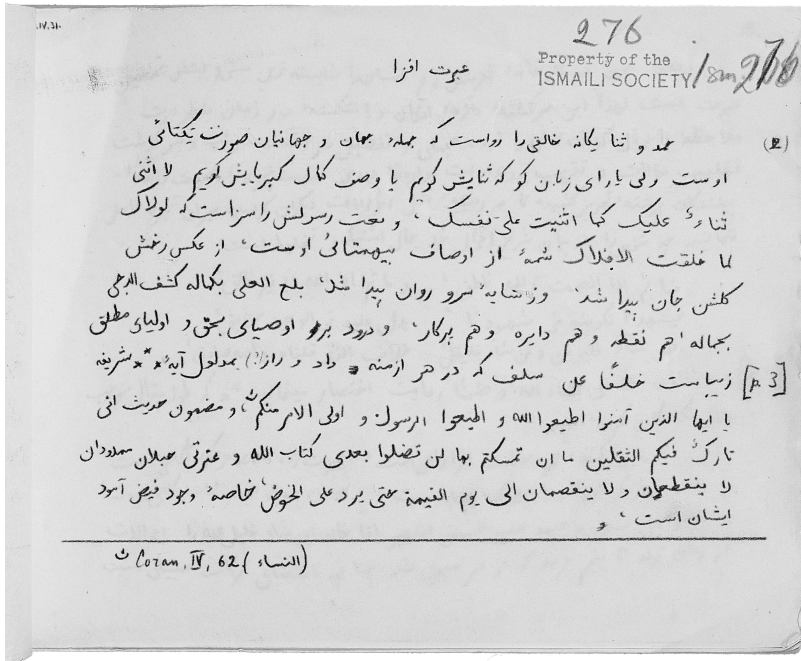 .IV.31.
276
Property of the
ISMAILI SOCIETY
عبرت افزا
(2) حمد و ثنا یگانه خالقی را رواست که جملهٔ جهان و جهانیان صورت یکتائی
اوست ولی یارای زبان کو که ثنایش گویم یا وصف کمال کبریایش گویم لا اثنی
ثناءً علیک کما اثنیت علی نفسک، و نعت رسولش را سزاست که لولاک
لما خلقت الافلاک شمهٔ از اوصاف بیهمتائی اوست، از عکس رخش
گلشن جان پیدا شد وز سایهٔ سرو روان پیدا شد، بلغ العلی بکماله کشف الدجی
بجماله هم نقطه و هم دایره و هم پرکار، و درود بر اوصیای بحق و اولیای مطلق
[p. 3] زیباست خلفًا عن سلف که در هر ازمنه داد و راز (؟) بمدلول آیهٔ شریفه
یا ایها الذین آمنوا اطیعوا الله و اطیعوا الرسول و اولی الامر منکم، و مضمون حدیث انی
تارک فیکم الثقلین ما ان تمسکتم بهما لن تضلوا بعدی کتاب الله و عترتی حبلان ممدودان
لا ینقطعان و لا ینقصمان الی یوم القیمة حتی یرد علی الحوض، خاصهٔ وجود فیض آمود
ایشان است،
Coran, IV, 62 (النساء)